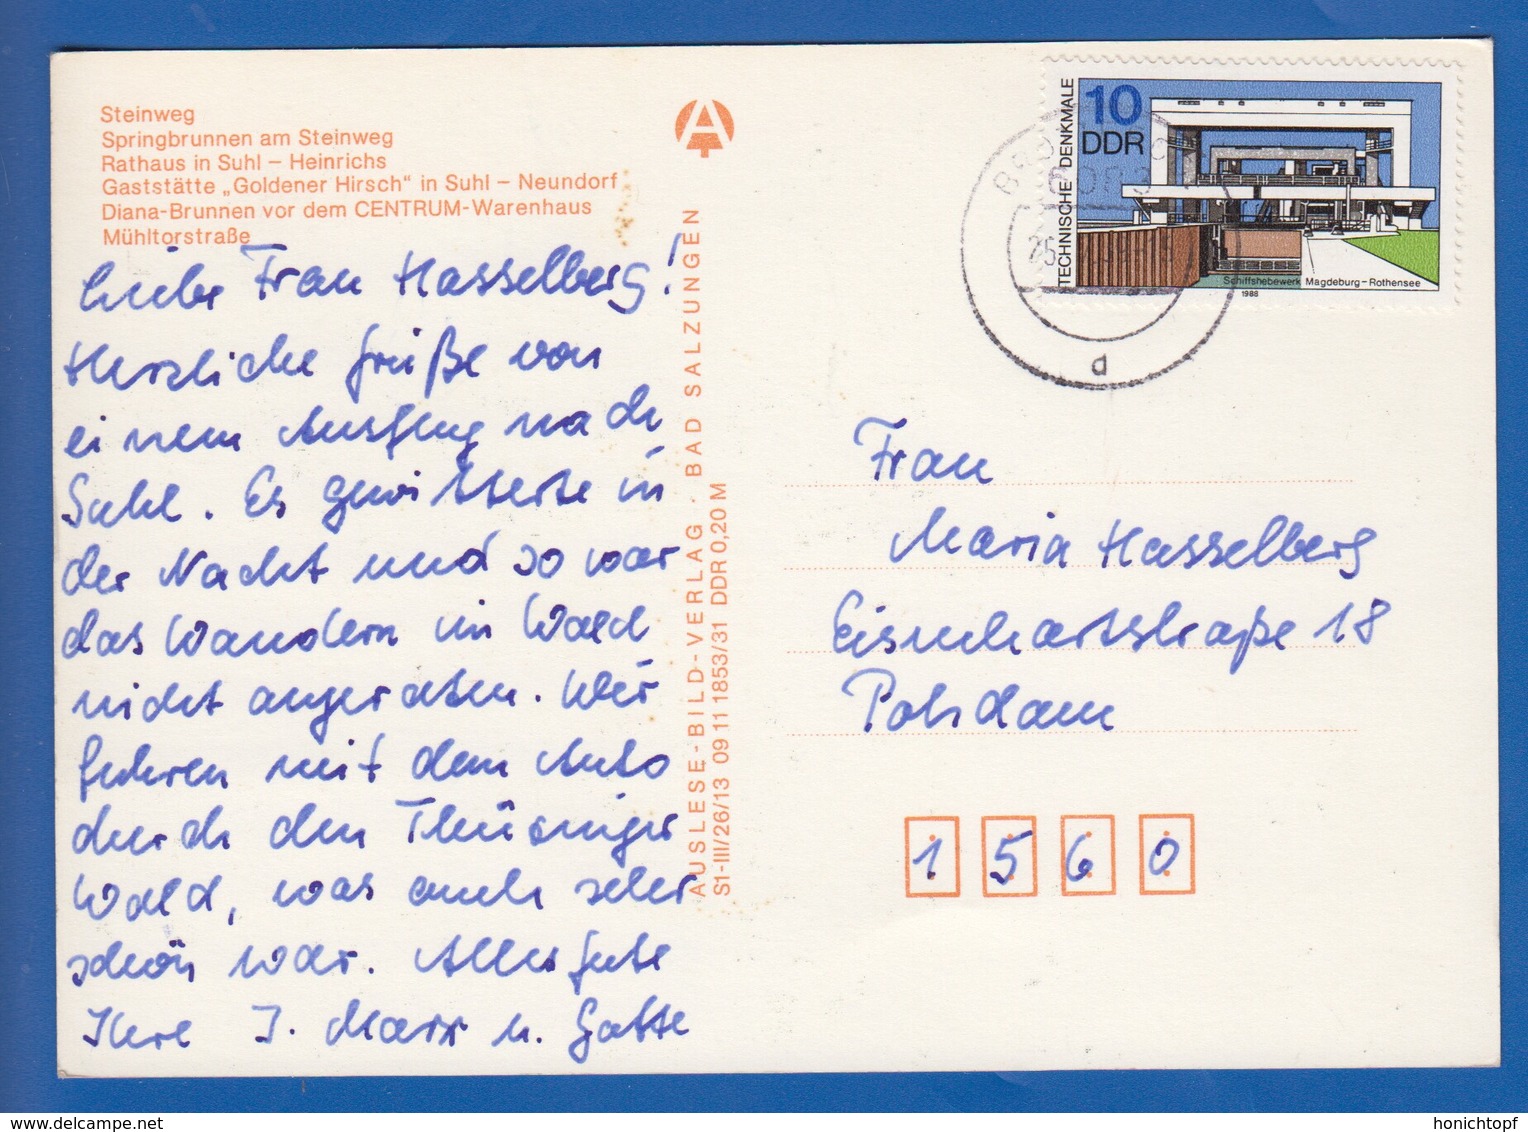 Steinweg
Springbrunnen am Steinweg
Rathaus in Suhl – Heinrichs
Gaststätte „Goldener Hirsch“ in Suhl – Neundorf
Diana-Brunnen vor dem CENTRUM-Warenhaus
Mühltorstraße
Liebe Frau Hasselberg!
Herzliche Grüße von
einem Ausflug nach
Suhl. Es gewitterte in
der Nacht und so war
das Wandern im Wald
nicht angeraten. Wir
fuhren mit dem Auto
durch den Thüringer
Wald, was auch sehr
schön war. Alles Gute
Ihre I. Marx u. Gatte
AUSLESE-BILD-VERLAG · BAD SALZUNGEN
S1-III/26/13 09 11 1853/31 DDR 0,20 M
TECHNISCHE DENKMALE
10
DDR
Schiffshebewerk Magdeburg–Rothensee
1988
d
Frau
Maria Hasselberg
Eisenhartstraße 18
Potsdam
1 5 6 0
www.delcampe.net
honichtopf